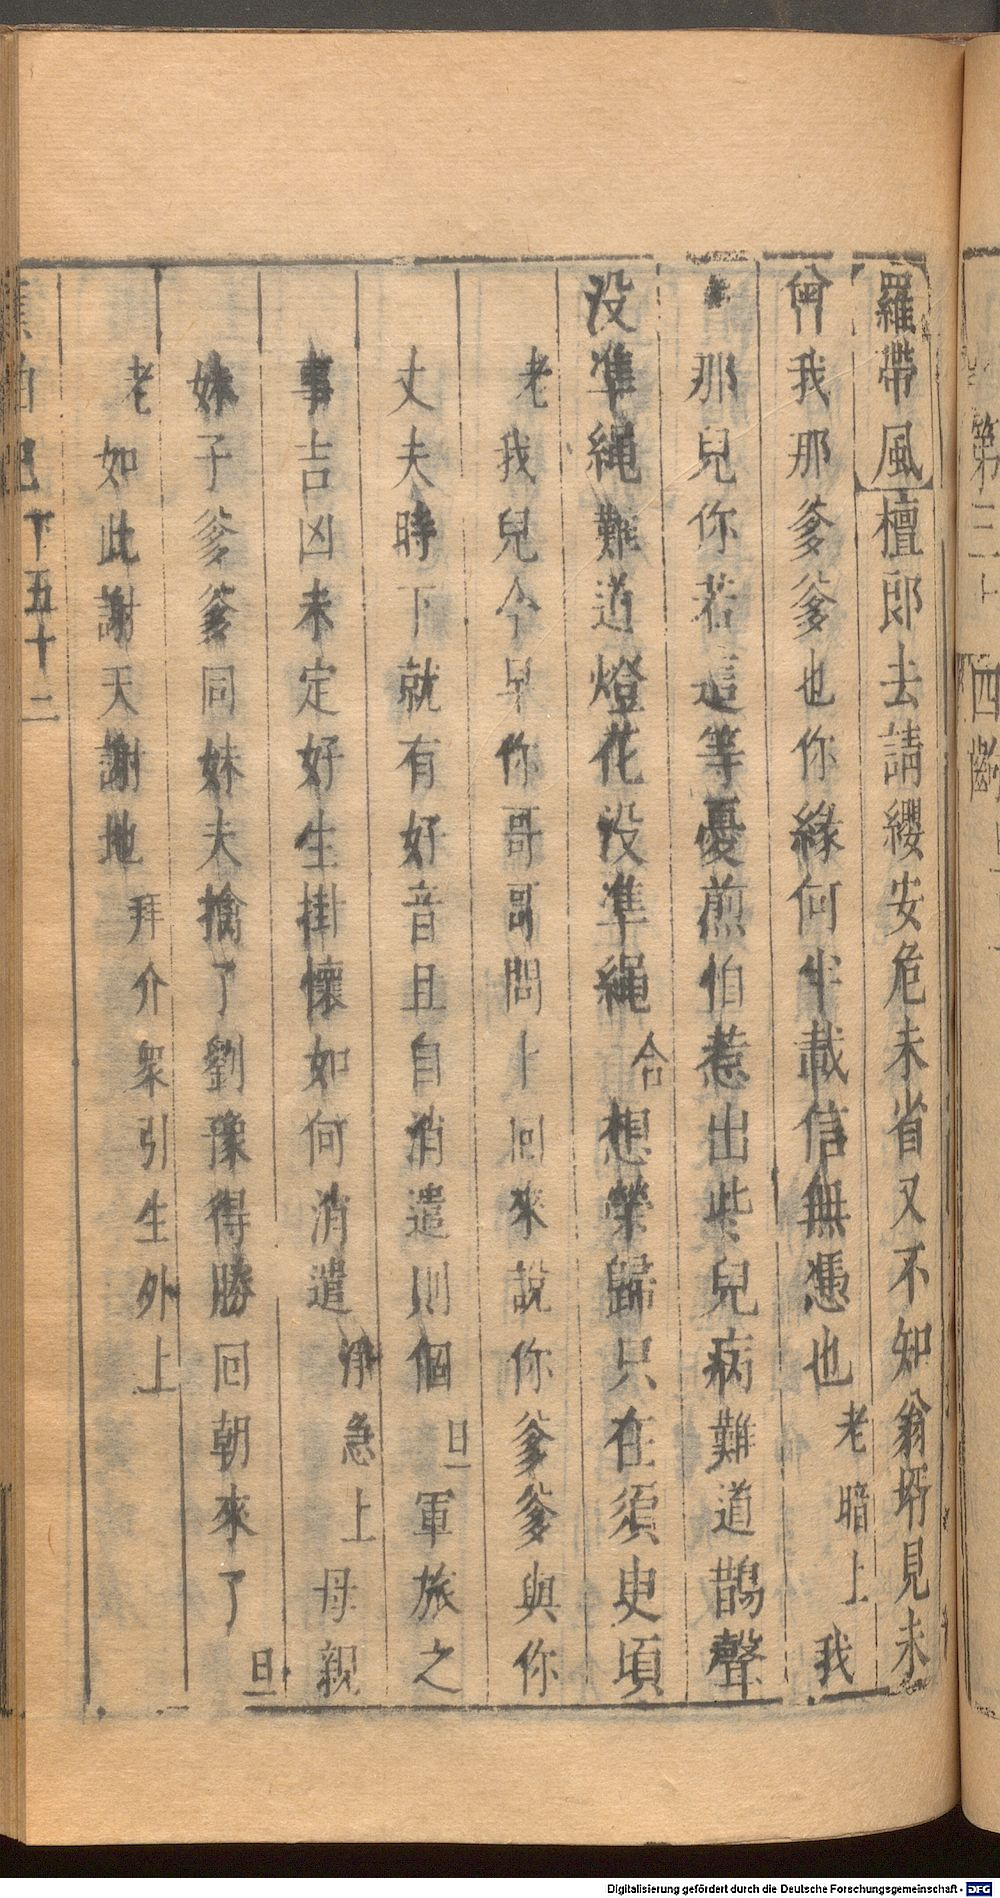 羅帶風檀郎去請纓安危未省又不知翁壻見未
曾我那爹爹也你緣何半載信無憑也老暗上我
那兒你若這等憂煎怕惹出些兒病難道鵲聲
没凖繩難道燈花没凖繩合想榮歸只在須臾頃
老我兒今早你哥哥問卜回來說你爹爹與你
丈夫時下就有好音且自消遣則個旦軍旅之
事吉凶未定好生掛懷如何消遣淨急上母親
妹子爹爹同妹夫擒了劉豫得勝回朝來了旦
老如此謝天謝地拜介衆引生外上
下五十二
第三十
四齣
Digitalisierung gefördert durch die Deutsche Forschungsgemeinschaft - DFG